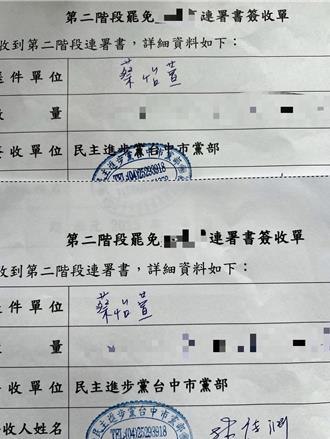 第二階段罷免 連署書簽收單
收到第二階段連署書，詳細資料如下：
件單位 蔡怡萱
量
收單位 民主進步黨台中市黨部
民主進步黨台中市黨部
TEL:(04)25293918
第二階段罷免 連署書簽收單
收到第二階段連署書，詳細資料如下：
件單位 蔡怡萱
量
收單位 民主進步黨台中市黨部
收人姓名
民主進步黨台中市黨部
TEL:(04)25293918